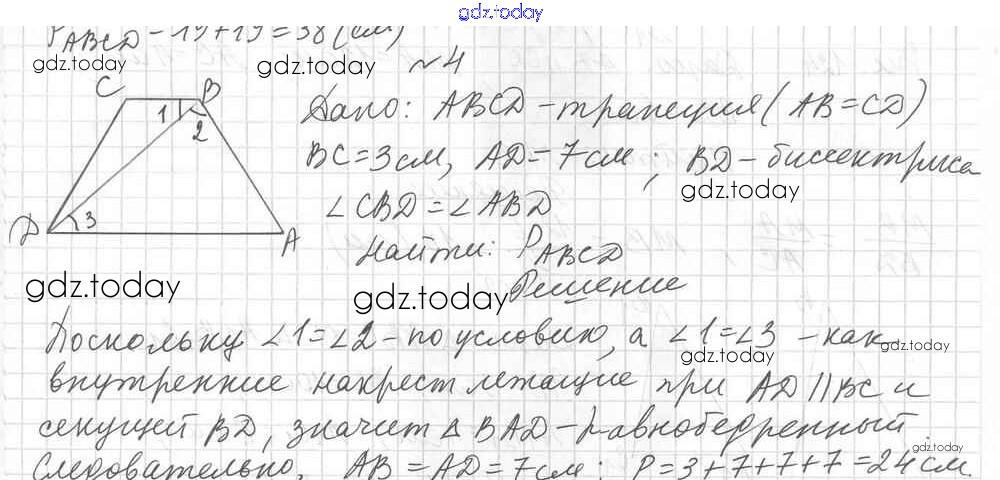 gdz.today
P_ABCD - 19+19=38 (см)
gdz.today gdz.today №4
C B
1 2
D 3 A
Дано: ABCD - трапеция (AB=CD)
BC=3см, AD=7см; BD - биссектриса
gdz.today
∠CBD=∠ABD
Найти: P_ABCD
gdz.today gdz.today Решение
Поскольку ∠1=∠2 - по условию, а ∠1=∠3 - как
gdz.today gdz.today
внутренние накрест лежащие при AD||BC и
секущей BD, значит △BAD - равнобедренный.
gdz.today
Следовательно, AB=AD=7см; P=3+7+7+7=24см.